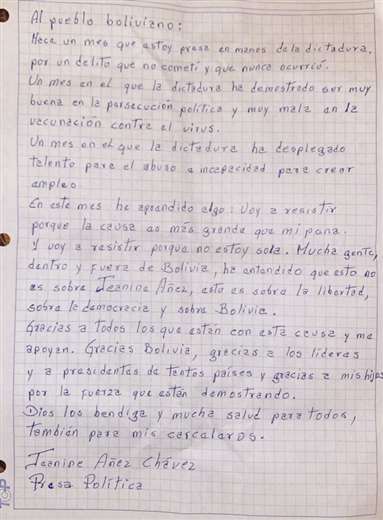 Al pueblo boliviano:
Hace un mes que estoy presa en manos de la dictadura,
por un delito que no cometí y que nunca ocurrió.
Un mes en el que la dictadura ha demostrado ser muy
buena en la persecución política y muy mala en la
vacunación contra el virus.
Un mes en el que la dictadura ha desplegado
talento para el abuso e incapacidad para crear
empleo.
En este mes he aprendido algo: Voy a resistir
porque la causa es más grande que mi pena.
Y voy a resistir porque no estoy sola. Mucha gente,
dentro y fuera de Bolivia, ha entendido que esto no
es sobre Jeanine Añez, esto es sobre la libertad,
sobre la democracia y sobre Bolivia.
Gracias a todos los que están con esta causa y me
apoyan. Gracias Bolivia, gracias a los líderes
y a presidentes de tantos países y gracias a mis hijos
por la fuerza que están demostrando.
Dios los bendiga y mucha salud para todos,
también para mis carcelaros.
Jeanine Añez Chávez
Presa Política
TOP